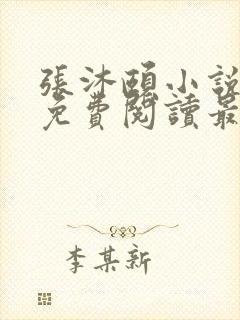 張沐頤小說
免費閱讀最
李某新